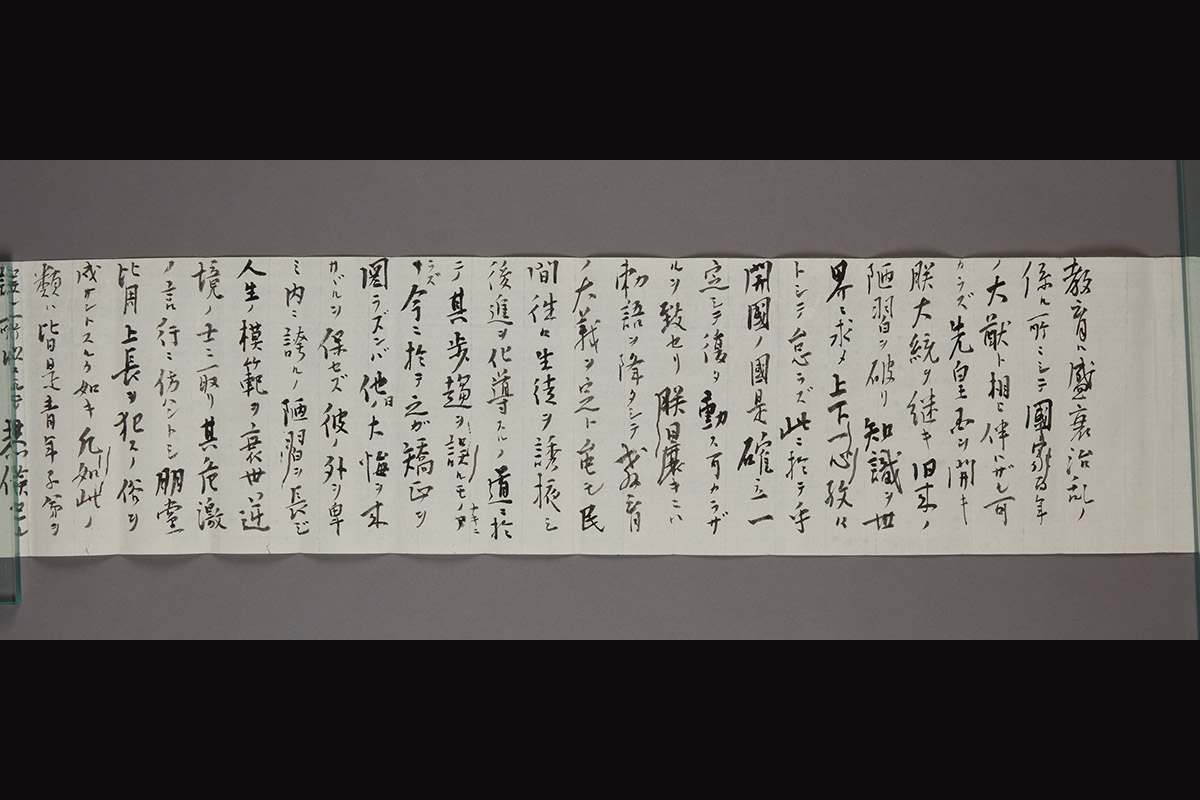 教育ハ盛衰治乱ノ
係ル所ニシテ國家百年
ノ大猷ト相ヒ伴ハザル可
カラズ先皇国ヲ開キ
朕大統ヲ継キ旧来ノ
陋習ヲ破リ知識ヲ世
界ニ求メ上下一心孜々
トシテ怠ラズ此ニ於テ乎
開國ノ國是確立一
定シテ復タ動ス可カラザ
ルヲ致セリ朕曩キニハ
勅語ヲ降タシテ教育
ノ大義ヲ定ト雖モ民
間往々生徒ヲ誘掖シ
後進ヲ化導スルノ道ニ於
テ其歩趨ヲ誤ルモノナキニ
アラズ今ニ於テ之ガ矯正ヲ
図ラズンバ他日ノ大悔ヲ来
サヾルヲ保セズ彼ノ外ヲ卑
ミ内ニ誇ルノ陋習ヲ長ジ
人生ノ模範ヲ衰世逆
境ノ士ニ取リ其危激
ノ言行ニ倣ハントシ朋党
比周上長ヲ犯スノ俗ヲ
成サントスルカ如キ凡如此ノ
類ハ皆是青年子弟ヲ
誤ル所以ニシテ恭倹